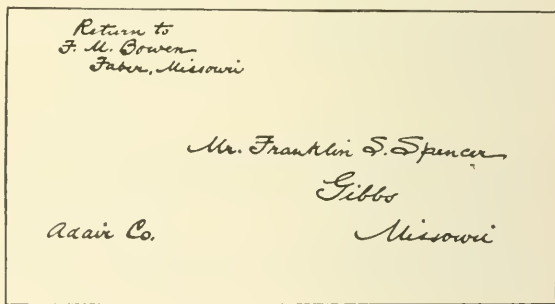 Return to
F. M. Bowen
Faber, Missouri
Mr. Franklin S. Spencer
Gibbs
Adair Co. Missouri